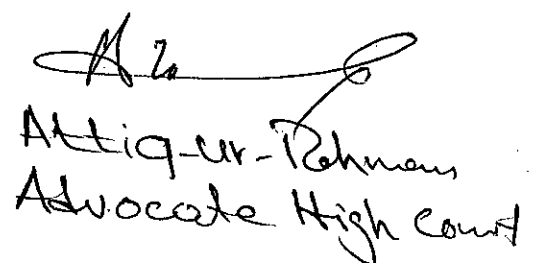 Attiq-ur-Rehman
Advocate High Court